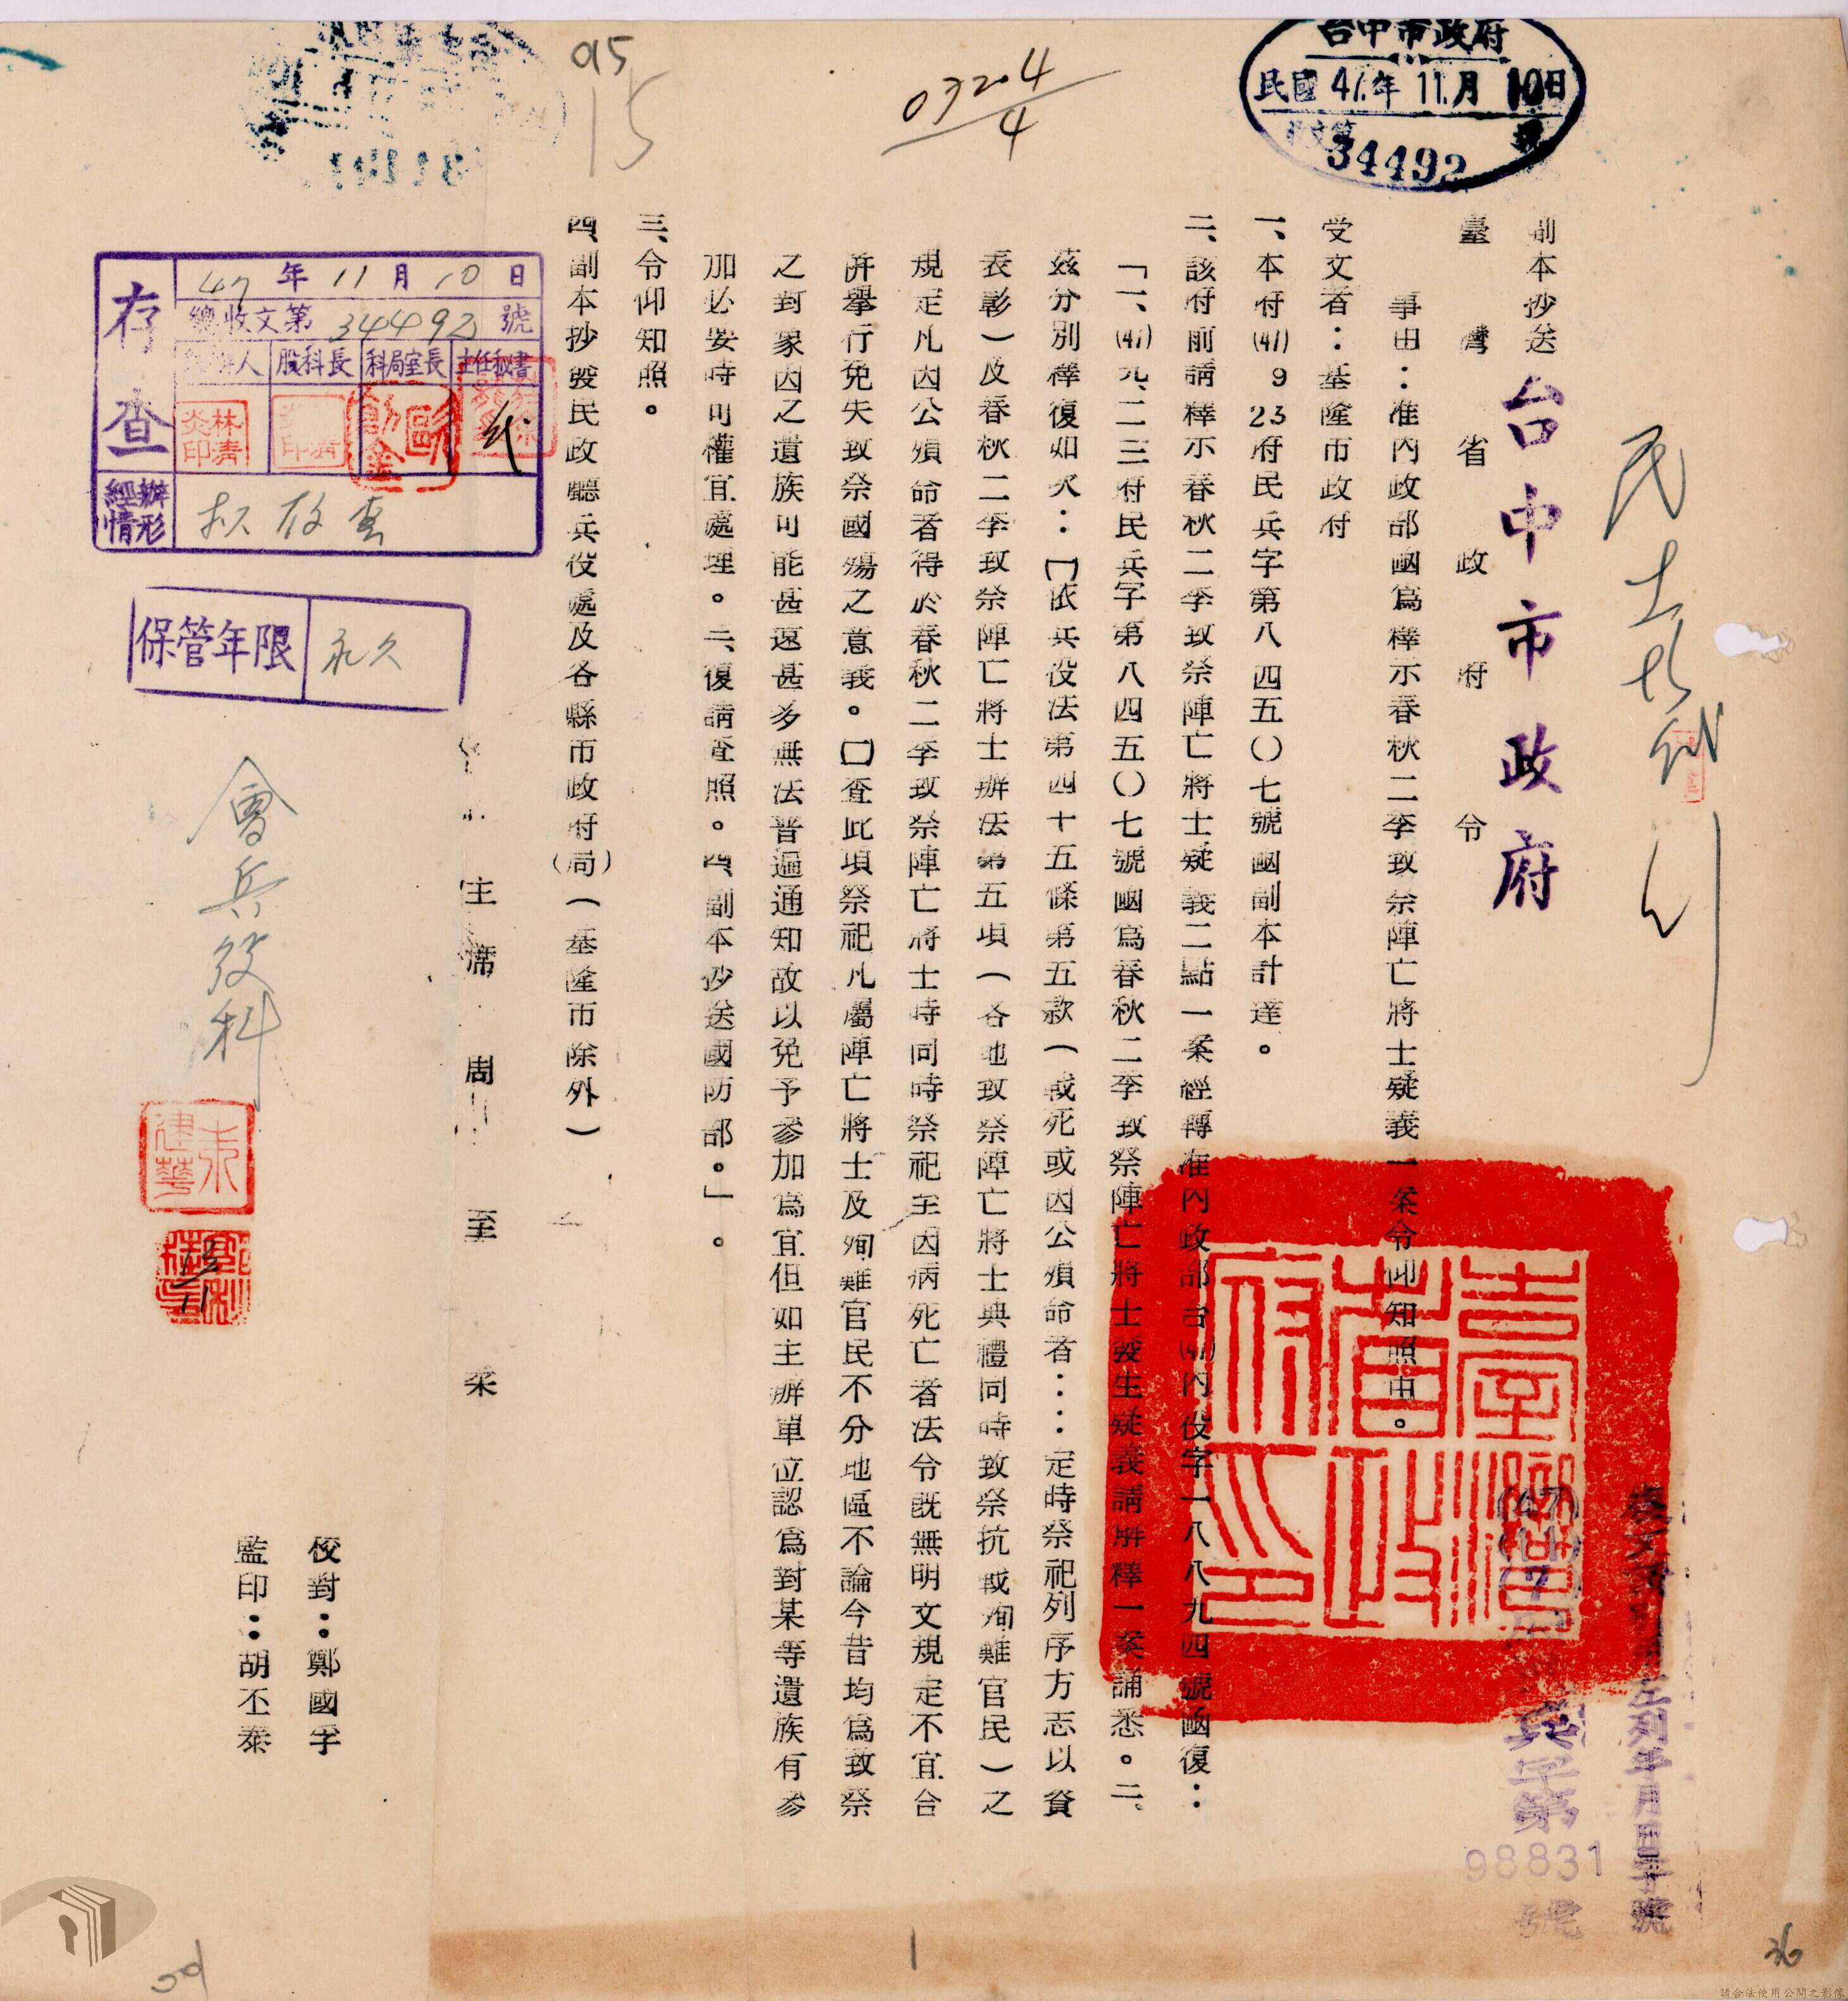 台中市政府
民國47年11月10日
34492
03204
4
015
15
副本抄送
台中市政府
臺灣省政府令
事由：准內政部函為釋示春秋二季致祭陣亡將士疑義一案令仰知照由。
受文者：基隆市政府
一、本府(47)923府民兵字第八四五〇七號函副本計達。
二、該府前請釋示春秋二季致祭陣亡將士疑義二點一案經轉准內政部台(47)內役字一八八九四號函復：
「一、(47)九、二三府民兵字第八四五〇七號函為春秋二季致祭陣亡將士發生疑義請解釋一案誦悉。二、
茲分別釋復如次：㈠依兵役法第四十五條第五款（戰死或因公殞命者：：定時祭祀列序方志以資
表彰）及春秋二季致祭陣亡將士辦法第五項（各地致祭陣亡將士典禮同時致祭抗戰殉難官民）之
規定凡因公殞命者得於春秋二季致祭陣亡將士時同時祭祀至因病死亡者法令既無明文規定不宜合
併舉行免失致祭國殤之意義。㈡查此項祭祀凡屬陣亡將士及殉難官民不分地區不論今昔均為致祭
之對象因之遺族可能甚遠甚多無法普遍通知故以免予參加為宜但如主辦單位認為對某等遺族有參
加必要時可權宜處理。三、復請查照。四、副本抄送國防部。」。
三、令仰知照。
四、副本抄發民政廳兵役處及各縣市政府（局）（基隆市除外）
主席 周至柔
校對：鄭國孚
監印：胡丕泰
存查
47年11月10日
總收文第34492號
股科長
科局室長
主任秘書
林清炎印
代
辦理情形
擬存查
保管年限
永久
會兵役科
臺灣省政府印
(47)
(11)
7
兵字第
98831
號
36
請合法使用公開之影像